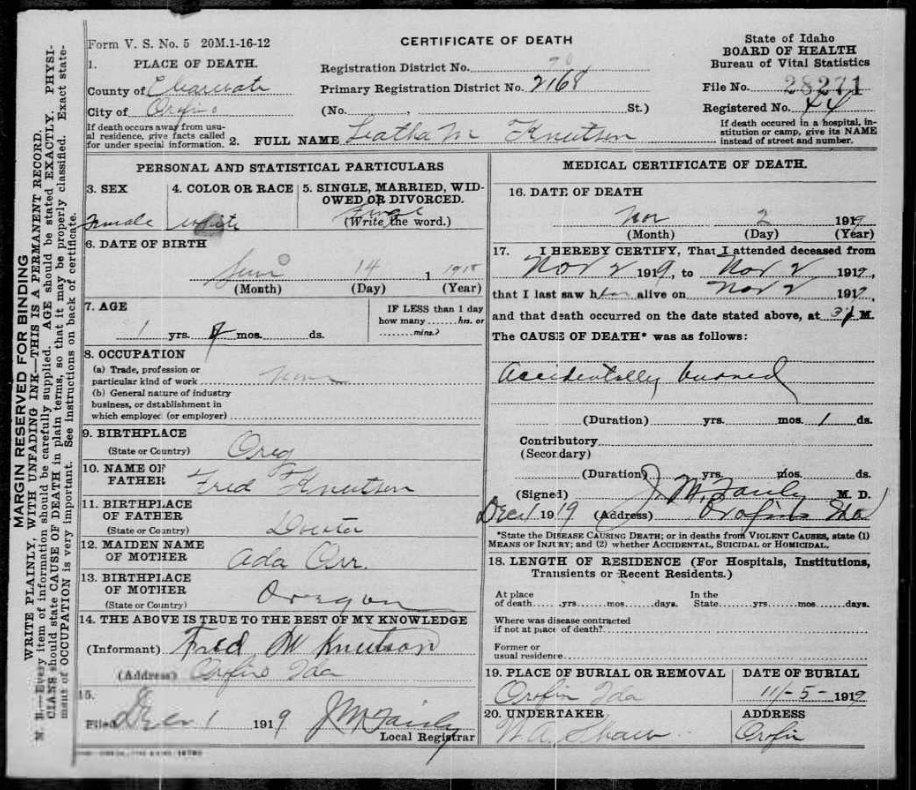 Form V. S. No. 5 20M.1-16-12
CERTIFICATE OF DEATH
State of Idaho
BOARD OF HEALTH
Bureau of Vital Statistics
1. PLACE OF DEATH.
County of Clearwate
City of Orofino
If death occurs away from usu-
al residence, give facts called
for under special information.
Registration District No.
Primary Registration District No. 2168
(No. St.)
File No. 28271
Registered No. 44
If death occured in a hospital, in-
stitution or camp, give its NAME
instead of street and number.
2. FULL NAME Leatha M Knutson
MARGIN RESERVED FOR BINDING
WRITE PLAINLY, WITH UNFADING INK—THIS IS A PERMANENT RECORD.
N. B.—Every item of information should be carefully supplied. AGE should be stated EXACTLY. PHYSI-
CIANS should state CAUSE OF DEATH in plain terms, so that it may be properly classified. Exact state-
ment of OCCUPATION is very important. See instructions on back of certificate.
PERSONAL AND STATISTICAL PARTICULARS
3. SEX
Female
4. COLOR OR RACE
White
5. SINGLE, MARRIED, WID-
OWED OR DIVORCED.
(Write the word.)
6. DATE OF BIRTH
June 14 1 1918
(Month) (Day) (Year)
7. AGE
1 yrs. mos. ds.
IF LESS than 1 day
how many ....... hrs. or
........ mins.?
8. OCCUPATION
(a) Trade, profession or
particular kind of work None
(b) General nature of industry
business, or establishment in
which employed (or employer)
9. BIRTHPLACE
(State or Country) Oreg
10. NAME OF
FATHER Fred Knutson
11. BIRTHPLACE
OF FATHER
(State or Country)
12. MAIDEN NAME
OF MOTHER Ada Orr.
13. BIRTHPLACE
OF MOTHER
(State or Country) Oregon
14. THE ABOVE IS TRUE TO THE BEST OF MY KNOWLEDGE
(Informant) Fred M Knutson
(Address) Orofino Ida
15.
Filed Dec 1 1919 J M Fairly
Local Registrar
MEDICAL CERTIFICATE OF DEATH.
16. DATE OF DEATH
Nov 2 1919
(Month) (Day) (Year)
17. I HEREBY CERTIFY, That I attended deceased from
Nov 2 1919, to Nov 2 1919,
that I last saw her alive on Nov 2 1919,
and that death occurred on the date stated above, at M.
The CAUSE OF DEATH* was as follows:
Accidentally burned
(Duration) yrs. mos. 1 ds.
Contributory
(Secondary)
(Duration) yrs. mos. ds.
(Signed) J. M. Fairly M. D.
Dec 1 1919 (Address) Orofino Ida
*State the DISEASE CAUSING DEATH; or in deaths from VIOLENT CAUSES, state (1)
MEANS OF INJURY; and (2) whether ACCIDENTAL, SUICIDAL or HOMICIDAL.
18. LENGTH OF RESIDENCE (For Hospitals, Institutions,
Transients or Recent Residents.)
At place In the
of death.....yrs......mos......days. State......yrs......mos......days.
Where was disease contracted
if not at place of death?
Former or
usual residence
19. PLACE OF BURIAL OR REMOVAL
Orofin Ida
DATE OF BURIAL
11-5-1919
20. UNDERTAKER
W. A. Shaw
ADDRESS
Orofin